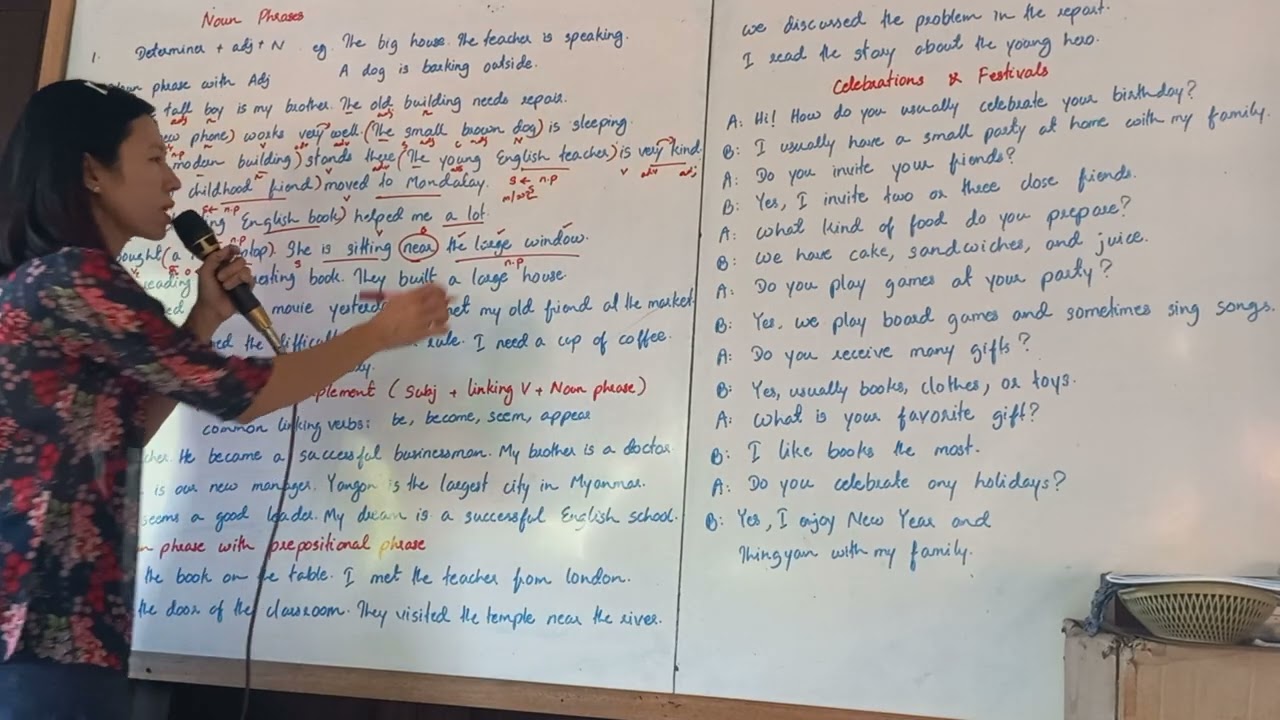 Noun Phrases
1. Determiner + adj + N eg. The big house. The teacher is speaking.
A dog is barking outside.
phrase with Adj
tall boy is my brother. The old building needs repair.
adj n adj n
phone) works very well. (The small brown dog) is sleeping.
modern building) stands there (The young English teacher) is very kind.
childhood friend) moved to Mandalay. s ← n.p
English book) helped me a lot.
She is sitting near the large window.
n.p
book. They built a large house
movie my old friend at the market.
the rule. I need a cup of coffee.
(Subj + linking V + Noun phrase)
common linking verbs: be, become, seem, appear
He became a successful businessman. My brother is a doctor.
is our new manager. Yangon is the largest city in Myanmar.
seems a good leader. My dream is a successful English school.
phrase with prepositional phrase
the book on the table. I met the teacher from london.
the door of the classroom. They visited the temple near the river.
we discussed the problem in the report.
I read the story about the young hero.
Celebrations & Festivals
A: Hi! How do you usually celebrate your birthday?
B: I usually have a small party at home with my family.
A: Do you invite your friends?
B: Yes, I invite two or three close friends.
A: What kind of food do you prepare?
B: We have cake, sandwiches, and juice.
A: Do you play games at your party?
B: Yes, we play board games and sometimes sing songs.
A: Do you receive many gifts?
B: Yes, usually books, clothes, or toys.
A: What is your favorite gift?
B: I like books the most.
A: Do you celebrate any holidays?
B: Yes, I enjoy New Year and
Thingyan with my family.